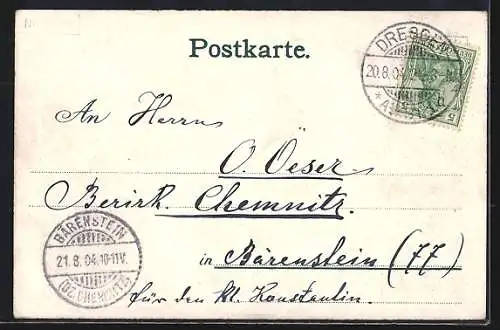 Postkarte.
DRESDEN
20.8.04
An Herrn
O. Oeser
Bezirk. Chemnitz.
in Bärenstein (77)
für den kl. Konstantin.
BÄRENSTEIN
21.8.04.10-11V.
(BZ. CHEMNITZ)
5